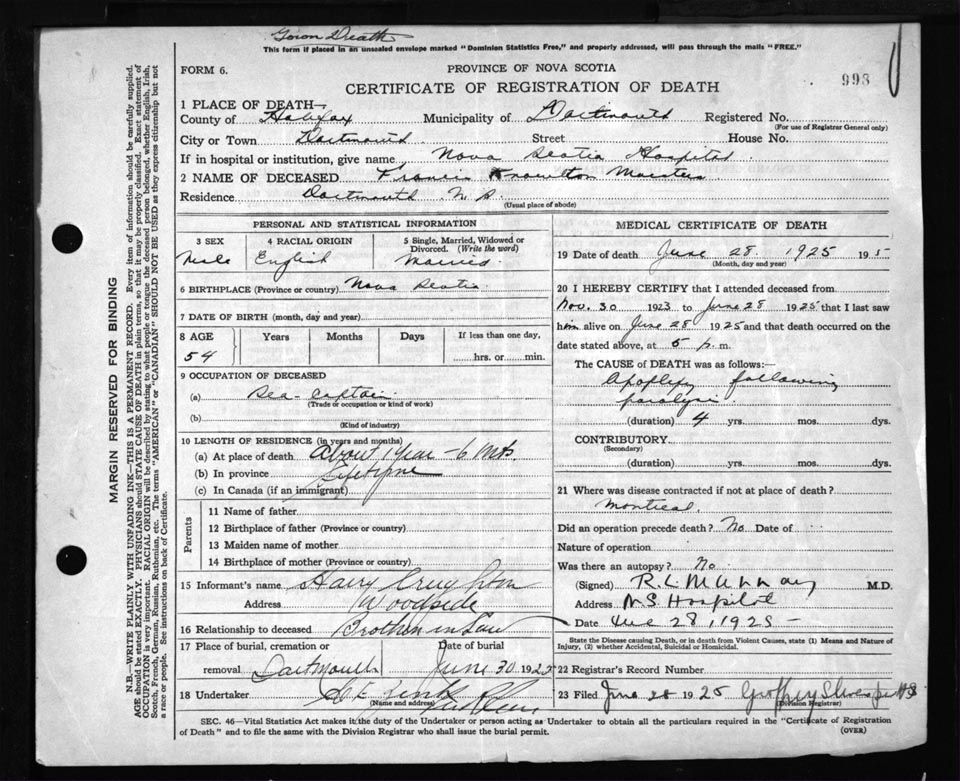 Town Death
This form if placed in an unsealed envelope marked "Dominion Statistics Free," and properly addressed, will pass through the mails "FREE."
FORM 6.
PROVINCE OF NOVA SCOTIA
998
CERTIFICATE OF REGISTRATION OF DEATH
1 PLACE OF DEATH—
County of Halifax Municipality of Dartmouth Registered No.
(For use of Registrar General only)
City or Town Dartmouth Street House No.
If in hospital or institution, give name Nova Scotia Hospital
2 NAME OF DECEASED Francis Knowlton
Residence Dartmouth N.S.
(Usual place of abode)
PERSONAL AND STATISTICAL INFORMATION
3 SEX 4 RACIAL ORIGIN 5 Single, Married, Widowed or Divorced. (Write the word)
Male English Married
6 BIRTHPLACE (Province or country) Nova Scotia
7 DATE OF BIRTH (month, day and year)
8 AGE Years Months Days If less than one day,
54 hrs. or min.
9 OCCUPATION OF DECEASED
(a) Sea-Captain
(Trade or occupation or kind of work)
(b)
(Kind of industry)
10 LENGTH OF RESIDENCE (in years and months)
(a) At place of death About 1 Year - 6 Mths.
(b) In province Lifetime
(c) In Canada (if an immigrant)
Parents
11 Name of father
12 Birthplace of father (Province or country)
13 Maiden name of mother
14 Birthplace of mother (Province or country)
15 Informant's name Harry Creighton
Address Woodside
16 Relationship to deceased Brother in Law
17 Place of burial, cremation or Date of burial
removal Dartmouth June 30 1925
18 Undertaker
(Name and address)
MEDICAL CERTIFICATE OF DEATH
19 Date of death June 28 1925 19
(Month, day and year)
20 I HEREBY CERTIFY that I attended deceased from
Nov. 30 1923 to June 28 1925 that I last saw
him alive on June 28 1925 and that death occurred on the
date stated above, at 5 p. m.
The CAUSE of DEATH was as follows:
Apoplexy following
paralysis
(duration) 4 yrs. mos. dys.
CONTRIBUTORY
(Secondary)
(duration) yrs. mos. dys.
21 Where was disease contracted if not at place of death?
Montreal
Did an operation precede death? No Date of
Nature of operation
Was there an autopsy? No
(Signed) R. L. Murray M.D.
Address N.S. Hospital
Date June 28, 1925
State the Disease causing Death, or in death from Violent Causes, state (1) Means and Nature of
Injury, (2) whether Accidental, Suicidal or Homicidal.
22 Registrar's Record Number
23 Filed June 28 1925
(Division Registrar)
SEC. 46—Vital Statistics Act makes it the duty of the Undertaker or person acting as Undertaker to obtain all the particulars required in the "Certificate of Registration
of Death" and to file the same with the Division Registrar who shall issue the burial permit. (OVER)
MARGIN RESERVED FOR BINDING
N.B.—WRITE PLAINLY WITH UNFADING INK—THIS IS A PERMANENT RECORD. Every item of information should be carefully supplied.
AGE should be stated EXACTLY. PHYSICIANS should STATE CAUSE OF DEATH in plain terms, so that it may be properly classified. Exact statement of
OCCUPATION is very important. RACIAL ORIGIN will be described by stating to what people or tongue the deceased person belonged, whether English, Irish,
Scotch, French, German, Russian, Ruthenian, etc. The terms "AMERICAN" or "CANADIAN" SHOULD NOT BE USED as they express citizenship but not
a race or people. See instructions on back of Certificate.